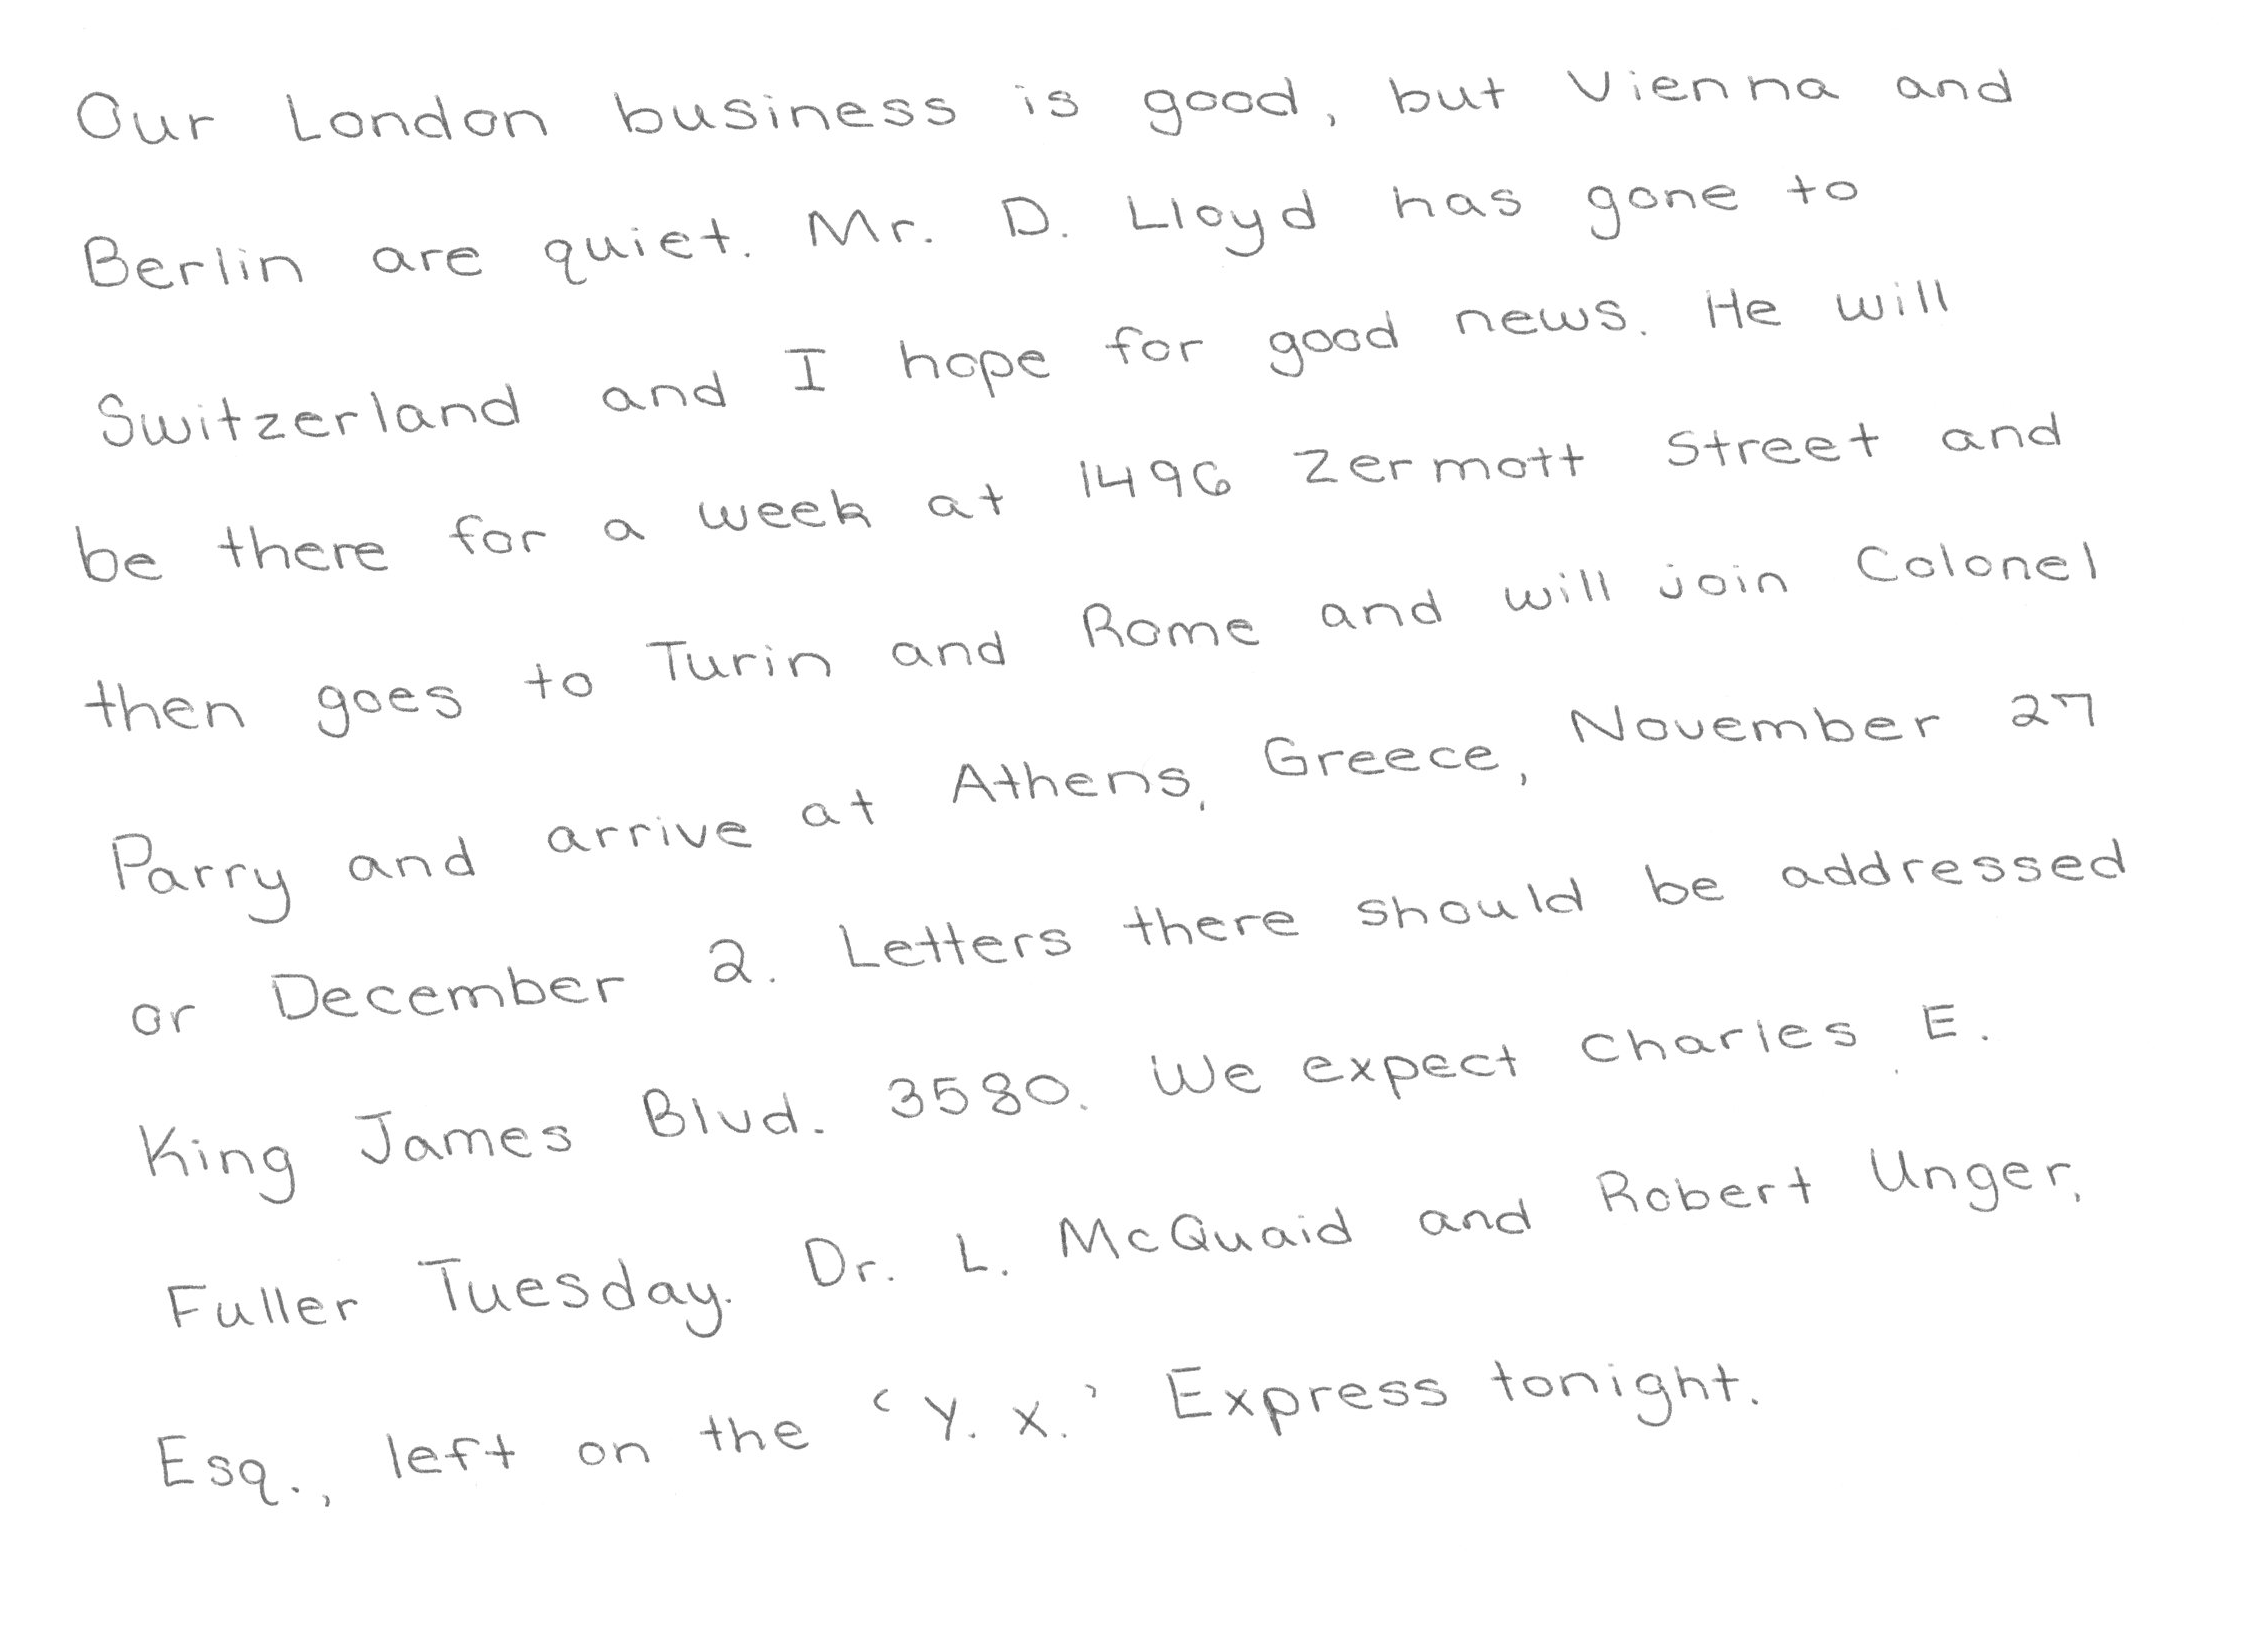 Our London business is good, but Vienna and
Berlin are quiet. Mr. D. Lloyd has gone to
Switzerland and I hope for good news. He will
be there for a week at 1496 Zermott Street and
then goes to Turin and Rome and will join Colonel
Parry and arrive at Athens, Greece, November 27
or December 2. Letters there should be addressed
King James Blvd. 3580. We expect Charles E.
Fuller Tuesday. Dr. L. McQuaid and Robert Unger,
Esq., left on the 'Y. X.' Express tonight.